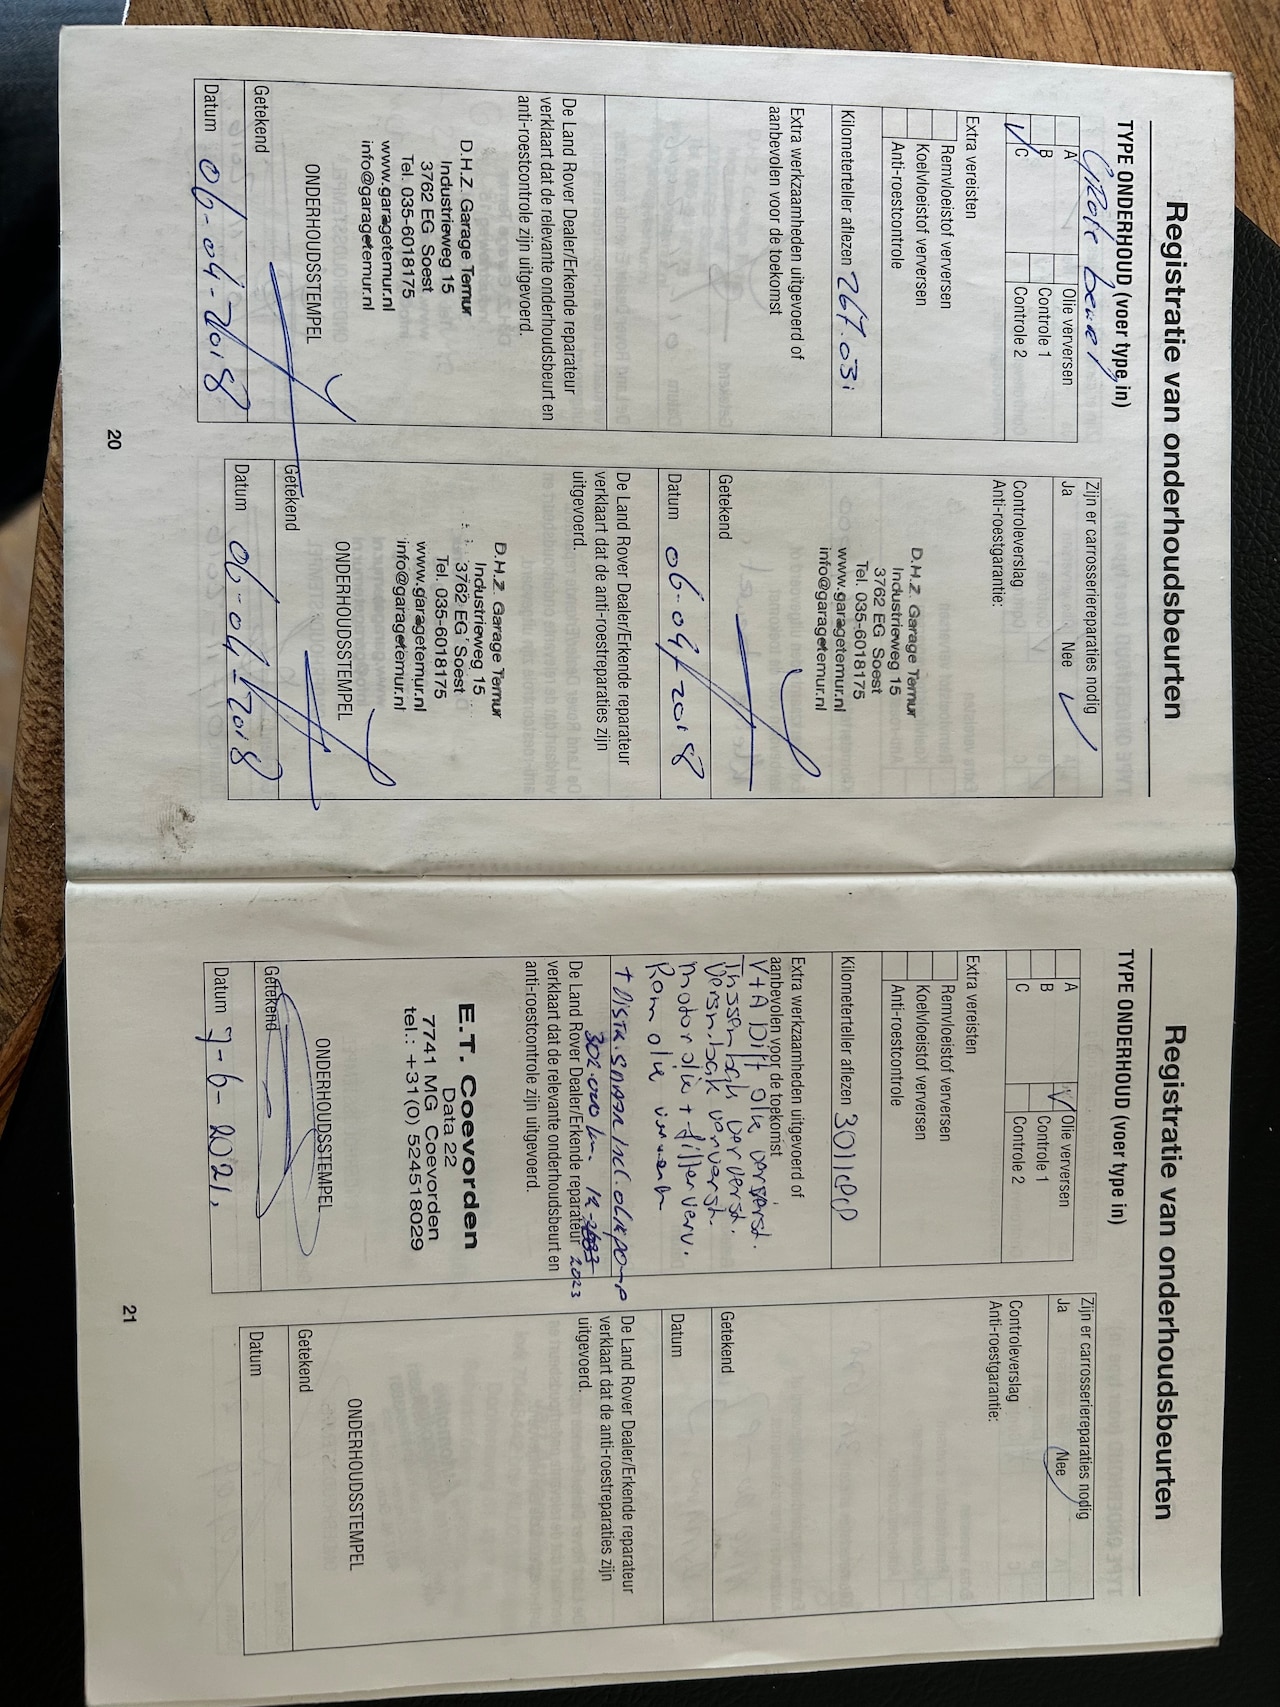 Registratie van onderhoudsbeurten
TYPE ONDERHOUD (voer type in)
Grote beurt
A
B
C
Olie verversen
Controle 1
Controle 2
Extra vereisten
Remvloeistof verversen
Koelvloeistof verversen
Anti-roestcontrole
Kilometerteller aflezen 267.031
Extra werkzaamheden uitgevoerd of
aanbevolen voor de toekomst
De Land Rover Dealer/Erkende reparateur
verklaart dat de relevante onderhoudsbeurt en
anti-roestcontrole zijn uitgevoerd.
D.H.Z. Garage Temur
Industrieweg 15
3762 EG Soest
Tel. 035-6018175
www.garagetemur.nl
info@garagetemur.nl
ONDERHOUDSSTEMPEL
Getekend
Datum 06-04-2018
Zijn er carrosseriereparaties nodig
Ja
Nee
Controleverslag
Anti-roestgarantie:
D.H.Z. Garage Temur
Industrieweg 15
3762 EG Soest
Tel. 035-6018175
www.garagetemur.nl
info@garagetemur.nl
Getekend
Datum 06-04-2018
De Land Rover Dealer/Erkende reparateur
verklaart dat de anti-roestreparaties zijn
uitgevoerd.
D.H.Z. Garage Temur
Industrieweg 15
3762 EG Soest
Tel. 035-6018175
www.garagetemur.nl
info@garagetemur.nl
ONDERHOUDSSTEMPEL
Getekend
Datum 06-04-2018
20
Registratie van onderhoudsbeurten
TYPE ONDERHOUD (voer type in)
A
B
C
Olie verversen
Controle 1
Controle 2
Extra vereisten
Remvloeistof verversen
Koelvloeistof verversen
Anti-roestcontrole
Kilometerteller aflezen
Extra werkzaamheden uitgevoerd of
aanbevolen voor de toekomst
V+A Diff olie ververst.
Tussenbak ververst.
Versn.bak ververst.
motorolie + filter verv.
Rem olie
+ Distr. snaar incl. oliepomp
302.000 km. 12- 2023
De Land Rover Dealer/Erkende reparateur
verklaart dat de relevante onderhoudsbeurt en
anti-roestcontrole zijn uitgevoerd.
E.T. Coevorden
Data 22
7741 MG Coevorden
tel.: +31(0) 524518029
ONDERHOUDSSTEMPEL
Getekend
Datum 7-6-2021.
Zijn er carrosseriereparaties nodig
Ja
Nee
Controleverslag
Anti-roestgarantie:
Getekend
Datum
De Land Rover Dealer/Erkende reparateur
verklaart dat de anti-roestreparaties zijn
uitgevoerd.
ONDERHOUDSSTEMPEL
Getekend
Datum
21